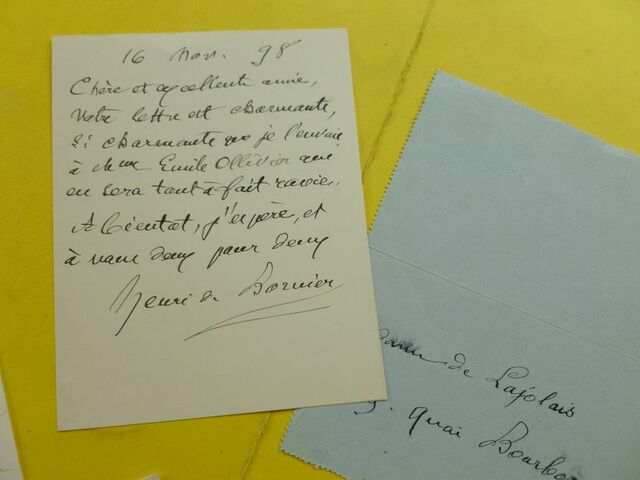 16 Nov. 98
Chère et excellente amie,
Votre lettre est charmante,
si charmante que je l'envoie
à Mme Emile Ollivier qui
en sera tout à fait ravie.
A bientôt, j'espère, et
à vous deux pour deux
Henri de Bornier
de Lajolais
quai Bourbon